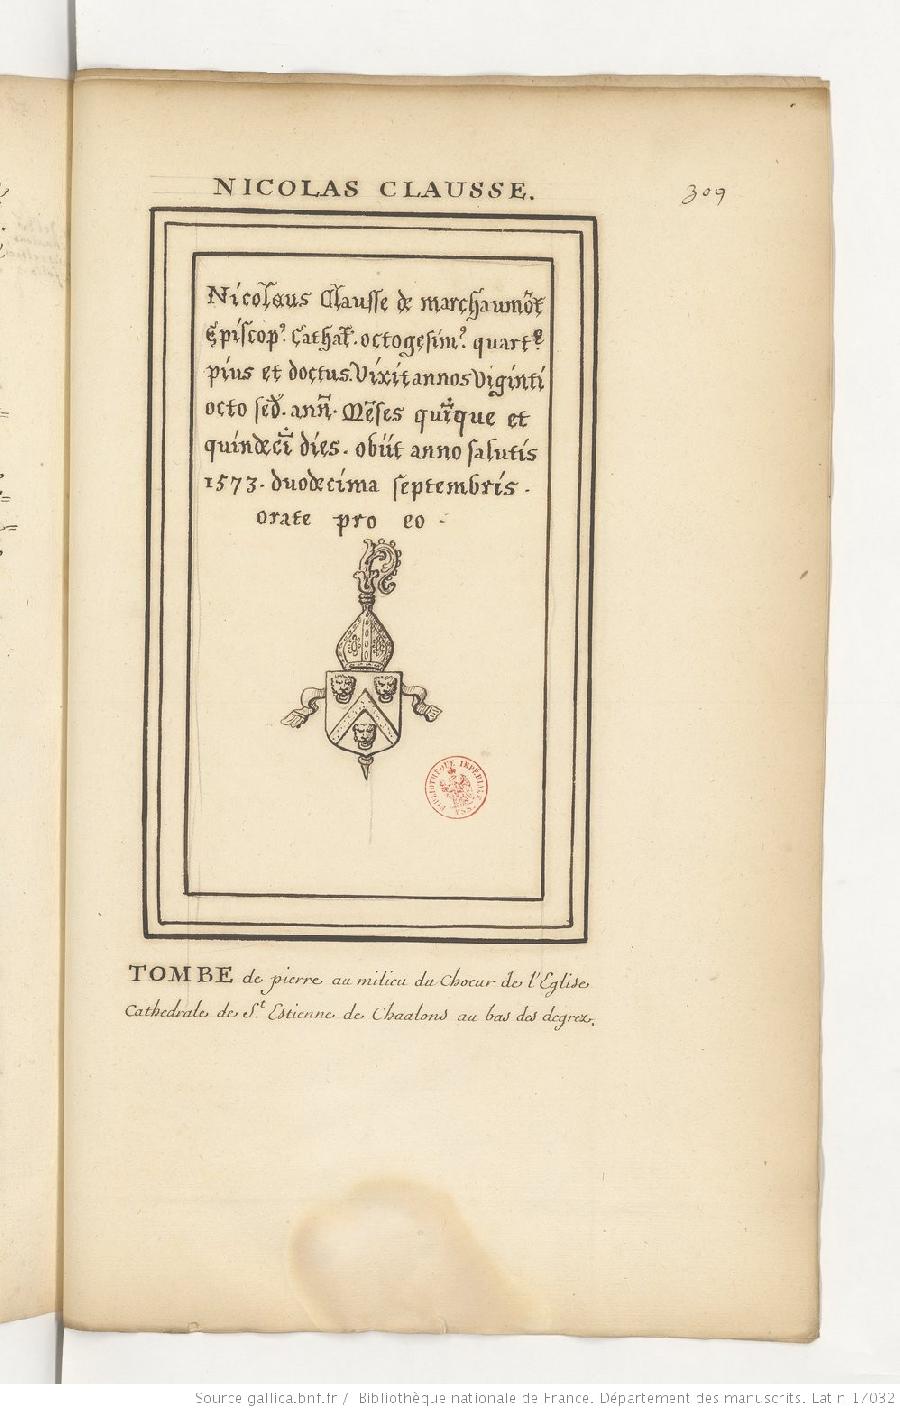 NICOLAS CLAUSSE.
309
Nicolaus Clausse de marchaumõt
Episcop⁹. Cathal̃. octogesim⁹. quart⁹.
pius et doctus. Vixit annos Viginti
octo sed̃. anñ. Mẽses quĩque et
quindecĩ dies. obiit anno salutis
1573. duodecima septembris.
orate pro eo.
BIBLIOTHÈQUE IMPÉRIALE MSS.
TOMBE de pierre au milieu du Choeur de l'Eglise
Cathedrale de St Estienne de Chaalons au bas des degrez.
Source gallica.bnf.fr / Bibliothèque nationale de France. Département des manuscrits. Latin 17032